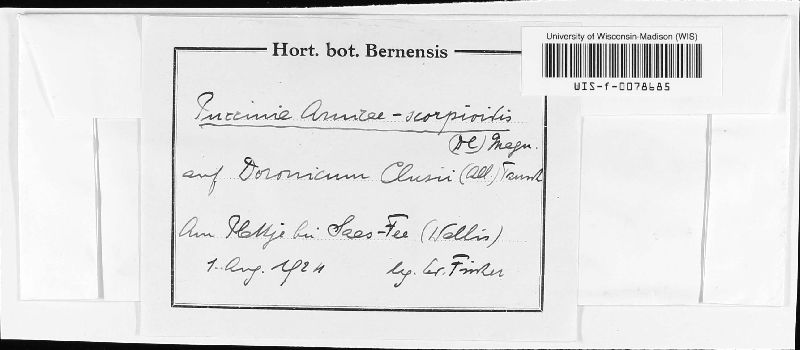 University of Wisconsin-Madison (WIS)
WIS-f-0078685
Hort. bot. Bernensis
Puccinia Arnicae-scorpioidis
(DC) Magn.
auf Doronicum Clusii (All.) Tausch
Am Plattje bei Saas-Fee (Wallis)
1. Aug. 1924 lg. Ed. Fischer